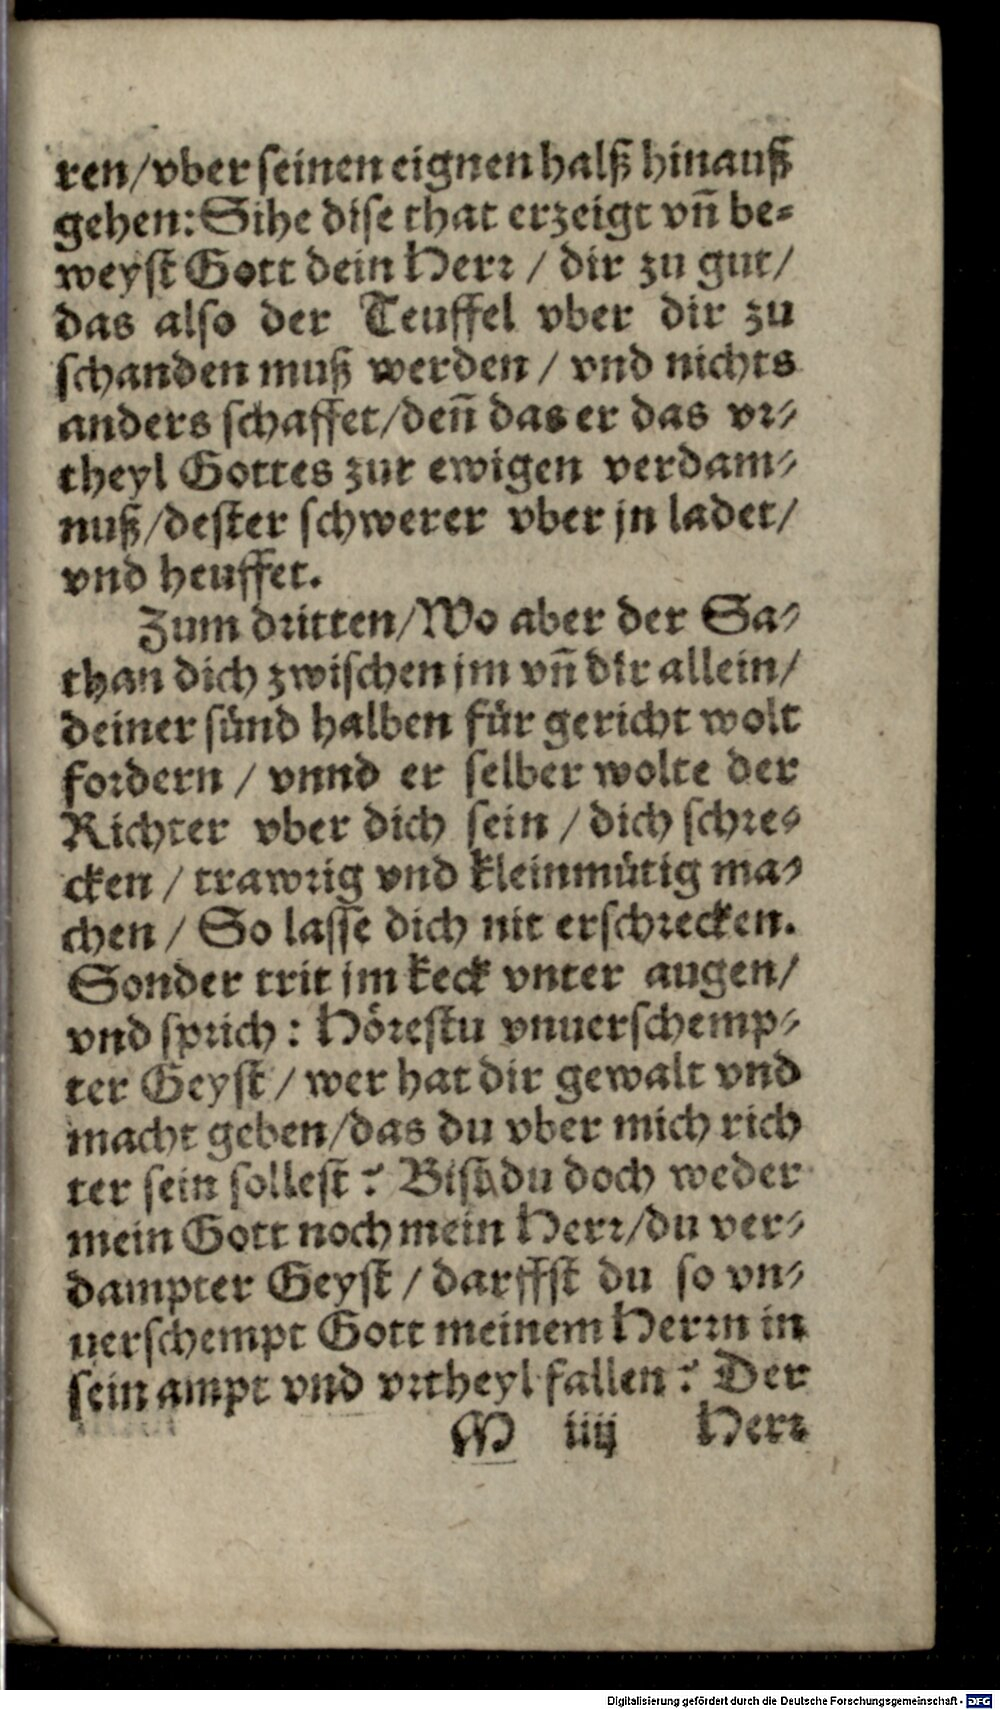 ren/vber seinen eignen halß hinauß
gehen: Sihe dise that erzeigt vn̄ be⸗
weyst Gott dein Herr / dir zu gut/
das also der Teuffel vber dir zu
schanden muß werden / vnd nichts
anders schaffet/den̄ das er das vr⸗
theyl Gottes zur ewigen verdam⸗
nuß/dester schwerer vber jn ladet/
vnd heuffet.
Zum dritten/Wo aber der Sa⸗
than dich zwischen jm vn̄ dir allein/
deiner sünd halben für gericht wolt
fordern / vnnd er selber wolte der
Richter vber dich sein / dich schre⸗
cken / trawrig vnd kleinmütig ma⸗
chen / So lasse dich nit erschrecken.
Sonder trit jm keck vnter augen/
vnd sprich: Hörestu vnuerschemp⸗
ter Geyst / wer hat dir gewalt vnd
macht geben/das du vber mich rich
ter sein sollest? Bist du doch weder
mein Gott noch mein Herr/du ver⸗
dampter Geyst / darffst du so vn⸗
uerschempt Gott meinem Herrn in
sein ampt vnd vrtheyl fallen? Der
M iiij Herr
Digitalisierung gefördert durch die Deutsche Forschungsgemeinschaft - DFG